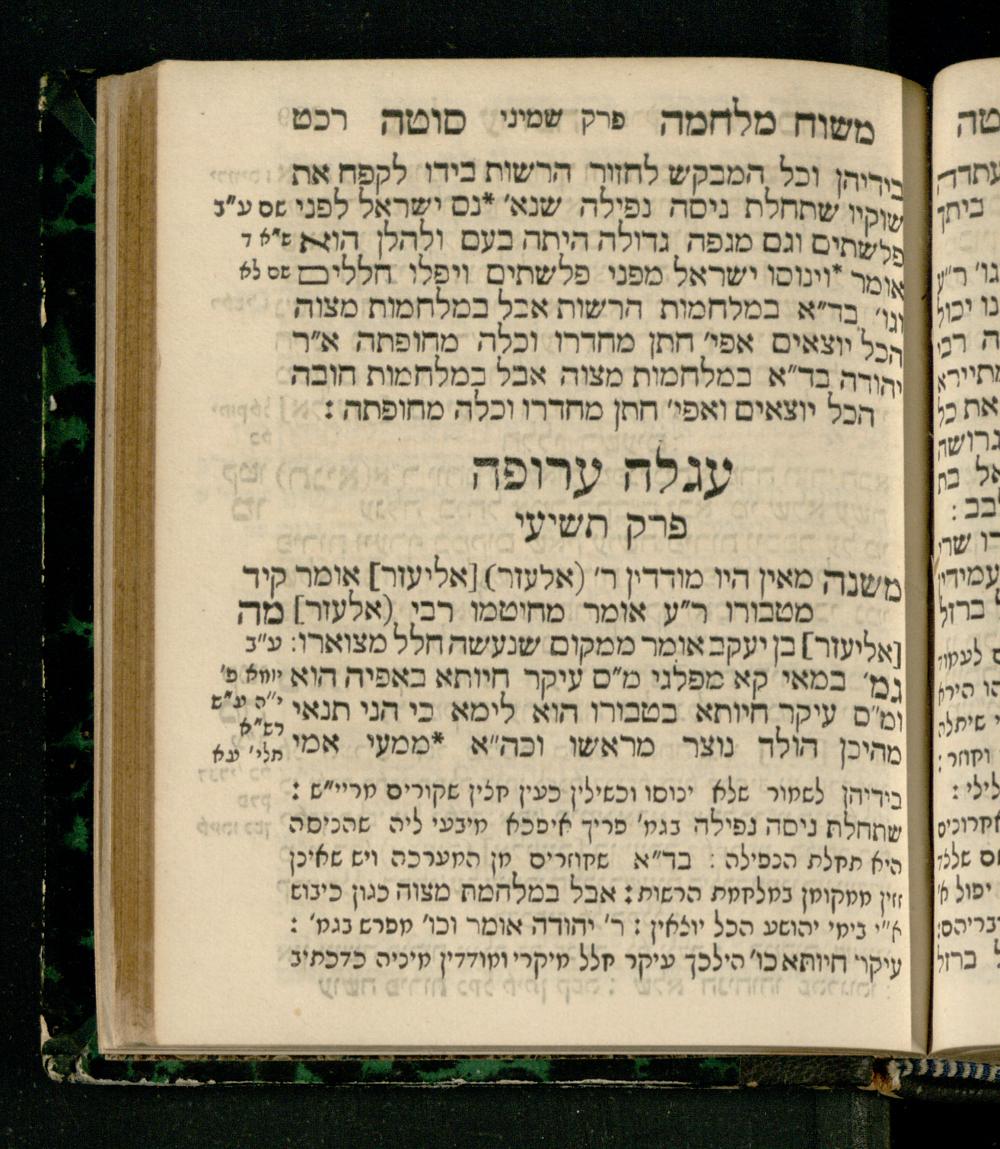 משוח מלחמה פרק שמיני סוטה רכט
בידיהן וכל המבקש לחזור הרשות בידו לקפח את
שוקיו שתחלת ניסה נפילה שנא׳ *נס ישראל לפני שם ע״ב
פלשתים וגם מגפה גדולה היתה בעם ולהלן הוא ש״א ד
אומר *וינוסו ישראל מפני פלשתים ויפלו חללים שם לא
וגו׳ בד״א במלחמות הרשות אבל במלחמות מצוה
הכל יוצאים אפי׳ חתן מחדרו וכלה מחופתה א״ר
יהודה בד״א במלחמות מצוה אבל במלחמות חובה
הכל יוצאים ואפי׳ חתן מחדרו וכלה מחופתה :
עגלה ערופה
פרק תשיעי
משנה מאין היו מודדין ר׳ (אלעזר) [אליעזר] אומר קיד
מטבורו ר״ע אומר מחיטמו רבי (אלעזר] מה
[אליעזר] בן יעקב אומר ממקום שנעשה חלל מצוארו: ע״ב
גמ׳ במאי קא מפלגי מ״ס עיקר חיותא באפיה הוא יומא פ׳
ומ״ס עיקר חיותא בטבורו הוא לימא כי הני תנאי י״ה ע״ש
רש״א
מהיכן הולד נוצר מראשו וכה״א *ממעי אמי תלי׳ עא
בידיהן לשמור שלא ינוסו וכשילין כעין חלין שקורים מריי״ש :
שתחלת ניסה נפילה בגמ׳ פריך איפכא מיבעי ליה שהניסה
היא תחלת הנפילה : בד״א שחוזרים מן המערכה ויש שאיכן
זזין ממקומן במלחמת הרשות : אבל במלחמת מצוה כגון כיבוש
א״י בימי יהושע הכל יוצאין : ר׳ יהודה אומר וכו׳ מפרש בגמ׳ :
עיקר חיותא כו׳ הילכך עיקר חלל מיקרי ומודדין מיניה כדכתיב